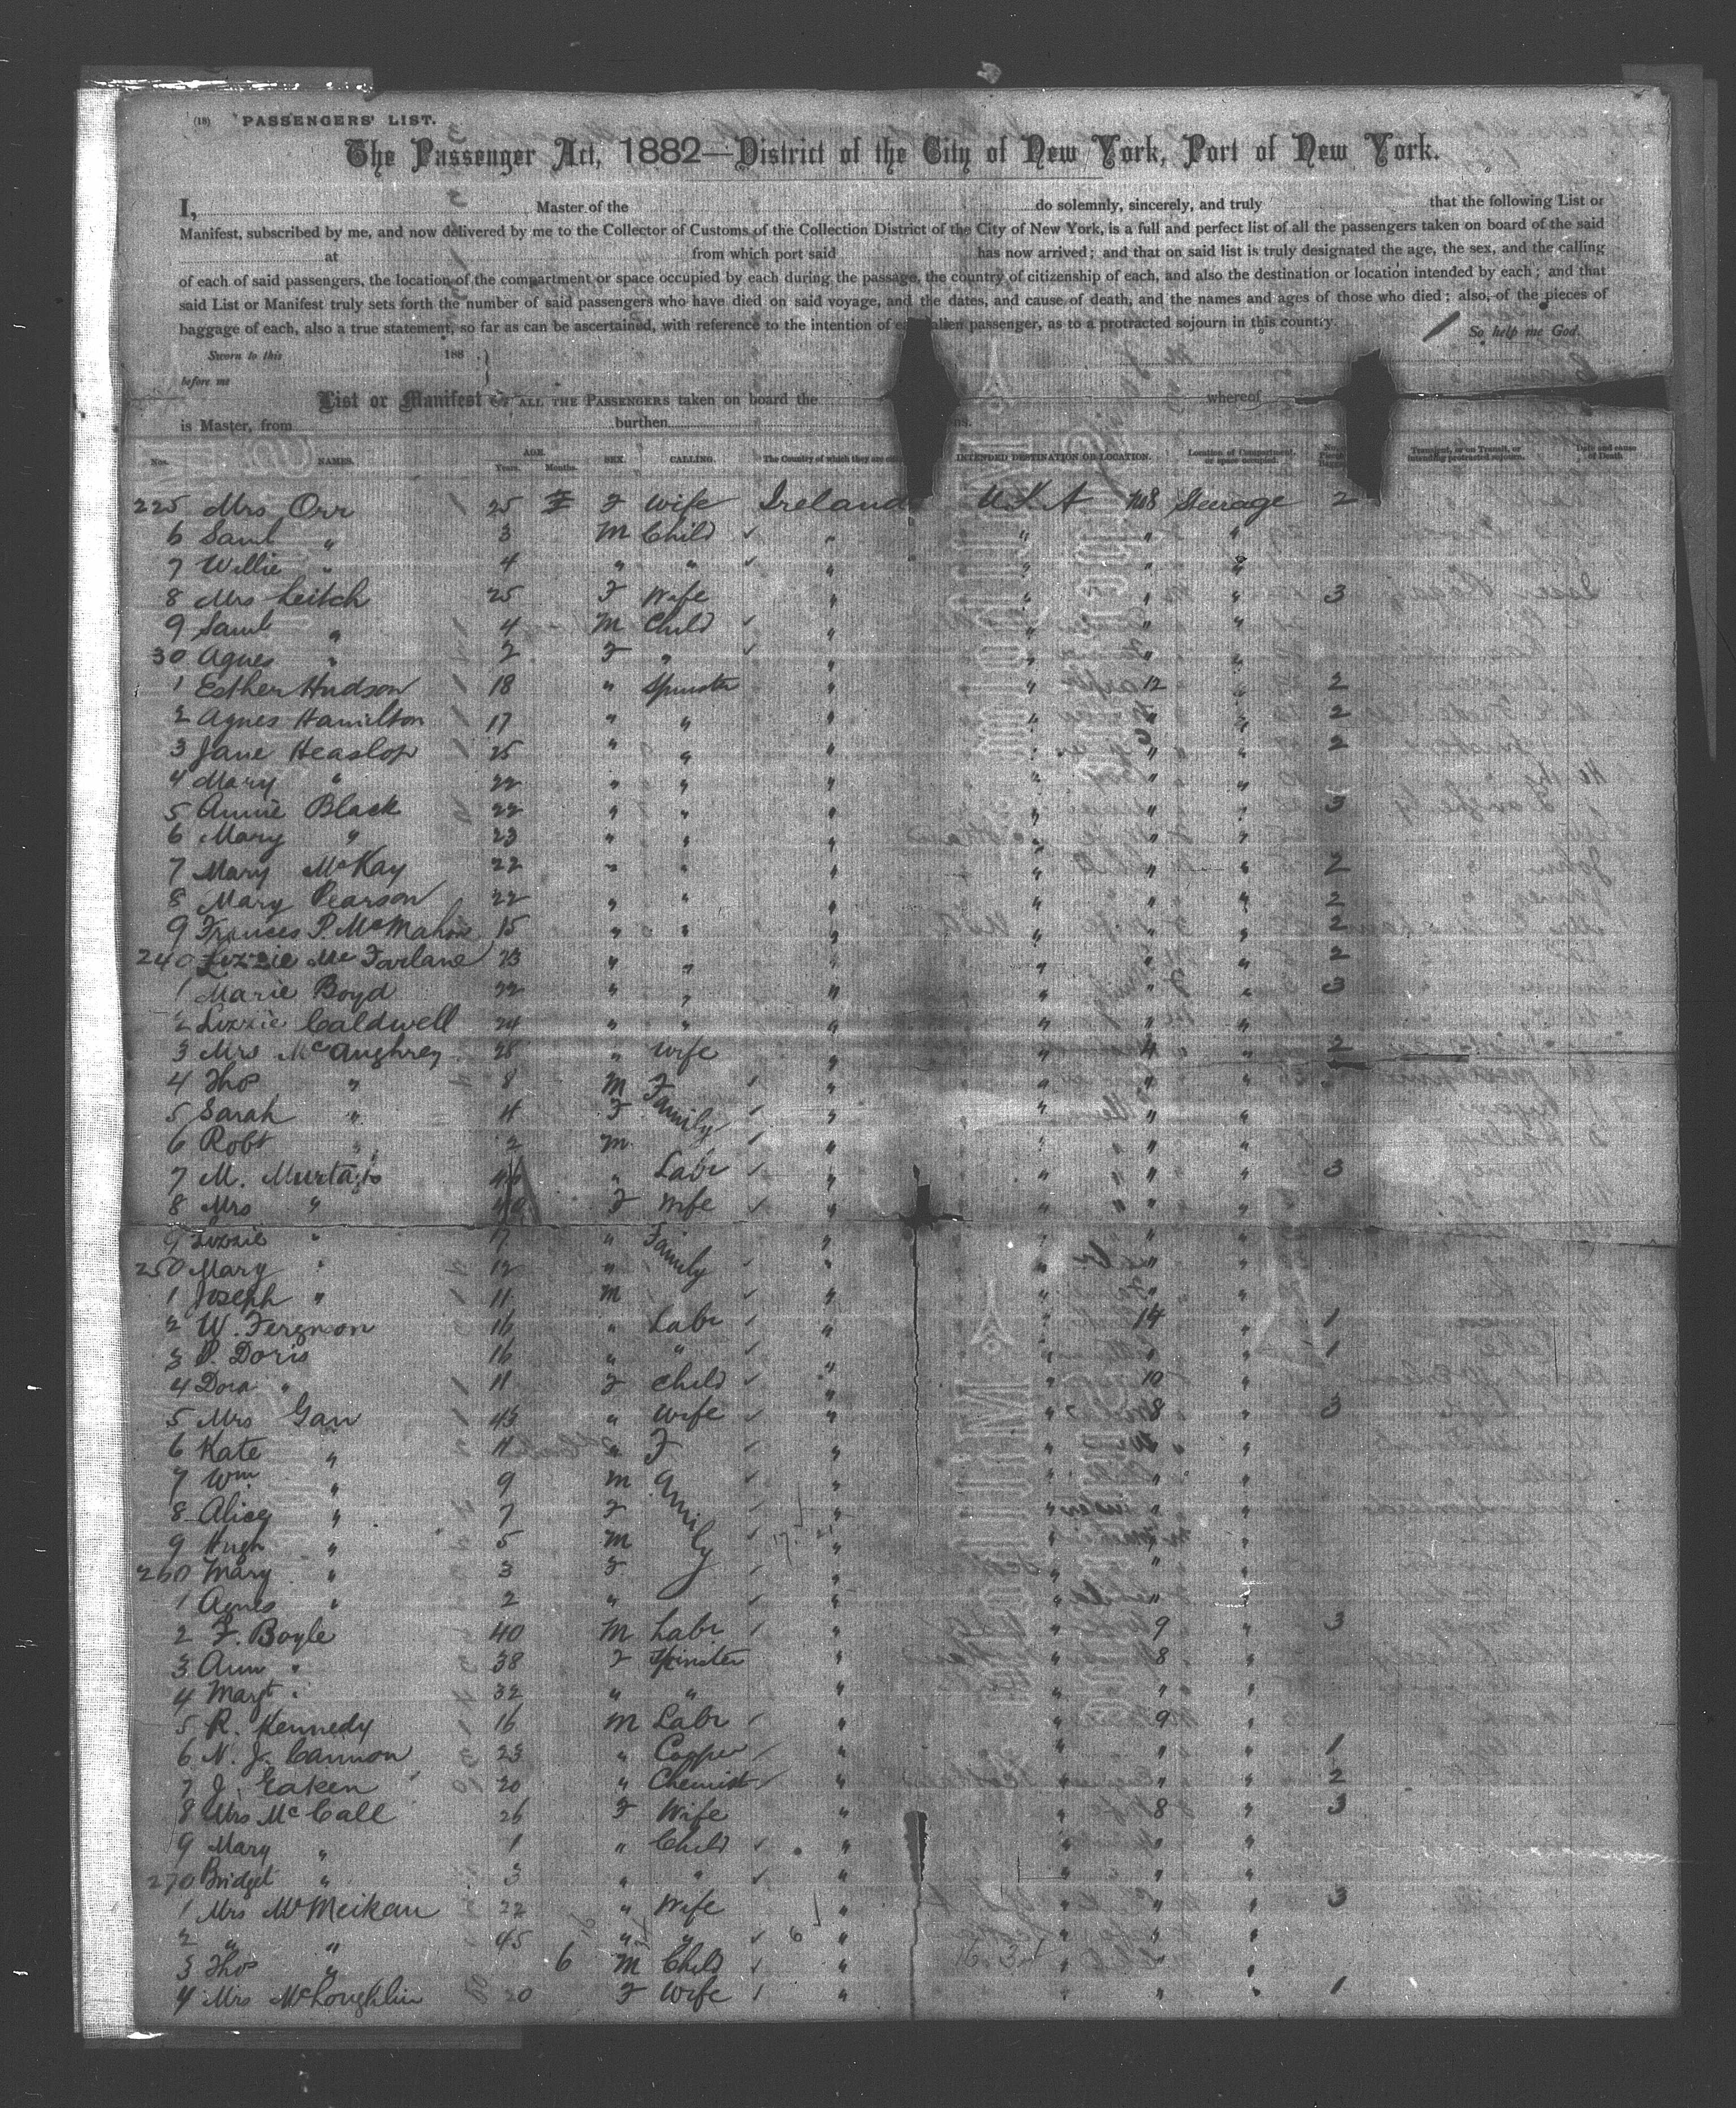 (18) PASSENGERS' LIST.
The Passenger Act, 1882—District of the City of New York, Port of New York.
I, Master of the do solemnly, sincerely, and truly that the following List or
Manifest, subscribed by me, and now delivered by me to the Collector of Customs of the Collection District of the City of New York, is a full and perfect list of all the passengers taken on board of the said
at from which port said has now arrived; and that on said list is truly designated the age, the sex, and the calling
of each of said passengers, the location of the compartment or space occupied by each during the passage, the country of citizenship of each, and also the destination or location intended by each; and that
said List or Manifest truly sets forth the number of said passengers who have died on said voyage, and the dates, and cause of death, and the names and ages of those who died; also, of the pieces of
baggage of each, also a true statement, so far as can be ascertained, with reference to the intention of alien passenger, as to a protracted sojourn in this country.
So help me God.
Sworn to this 188
before me
List or Manifest OF ALL THE PASSENGERS taken on board the whereof
is Master, from burthen
Nos. NAMES. AGE. Years. Months. SEX. CALLING. The Country of which they are INTENDED DESTINATION OR LOCATION. Location of Compartment or space occupied. Transient, or on Transit, or intending protracted sojourn. Date and cause of Death
225 Mrs Orr 25 F Wife Ireland U.S.A No 8 Steerage 2
6 Saml " 3 M Child " " " "
7 Willie " 4 " " " " " "
8 Mrs Leitch 25 F Wife " " " " 3
9 Saml " 4 M Child " " " "
30 Agnes " 2 F " " " " "
1 Esther Hudson 18 " Spinster " " 12 " 2
2 Agnes Hamilton 17 " " " " " " 2
3 Jane Heaslop 25 " " " " " " 2
4 Mary " 22 " " " " " "
5 Annie Black 22 " " " " " " 3
6 Mary " 23 " " " " " "
7 Mary McKay 22 " " " " " " 2
8 Mary Pearson 22 " " " " " " 2
9 Frances P. McMahon 15 " " " " " " 2
240 Lizzie McFarlane 23 " " " " " " 2
1 Marie Boyd 22 " " " " " " 3
2 Lizzie Caldwell 24 " " " " " "
3 Mrs McAughrey 28 " Wife " " 4 " 2
4 Thos " 8 M Family " " " "
5 Sarah " 4 F " " " "
6 Robt " 2 M " " " "
7 M. Murtagh " Labr " " " " 3
8 Mrs " F Wife " " " "
9 Lizzie " 7 " Family " " " "
250 Mary " 12 " " " " "
1 Joseph " 11 M " " " "
2 W. Ferguson 16 " Labr " " 14 " 1
3 P. Doris 16 " " " " " " 1
4 Dora " 11 F Child " " 10 "
5 Mrs Gan 45 " Wife " " 8 " 3
6 Kate " 11 " Family " " " "
7 Wm " 9 M " " " "
8 Alice " 7 F " " " "
9 Hugh " 5 M " " " "
260 Mary " 3 F " " " "
1 Agnes " 2 " " " " "
2 F. Boyle 40 M Labr " " 9 " 3
3 Ann " 38 F Spinster " " 8 "
4 Margt " 32 " " " " " "
5 R. Kennedy 16 M Labr " " 9 "
6 N. J. Cannon 23 " " " " " 1
7 J. Eaken 20 " Chemist " " " " 2
8 Mrs McCall 26 F Wife " " 8 " 3
9 Mary " 1 " Child " " " "
270 Bridget " 3 " " " " " "
1 Mrs McMeikan 22 " Wife " " " " 3
2 " " 45 " " " " " "
3 Thos " 6 M Child " " " "
4 Mrs McLoughlin 20 F Wife " " " " 1